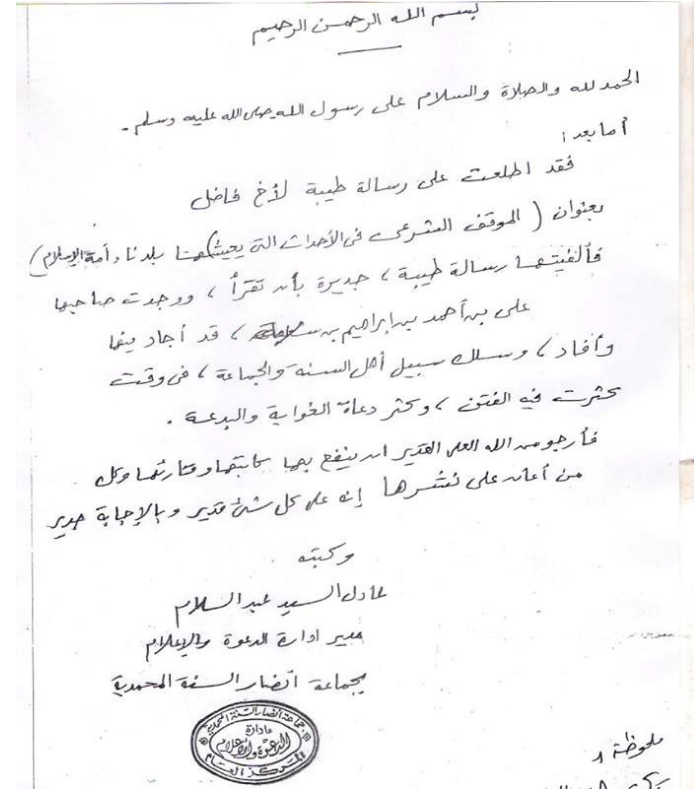 بسم الله الرحمن الرحيم
الحمد لله والصلاة والسلام على رسول الله صلى الله عليه وسلم .
أما بعد :
فقد اطلعت على رسالة طيبة لأخ فاضل
بعنوان ( الموقف الشرعى فى الأحداث التى يعيشها بلدنا وأمة الإسلام )
فألفيتها رسالة طيبة ، جديرة بأن تقرأ ، ووجدت صاحبها
على بن أحمد بن إبراهيم بن ، قد أجاد فيها
وأفاد ، وسلك سبيل أهل السنة والجماعة ، فى وقت
كثرت فيه الفتن ، وكثر دعاة الغواية والبدعة .
فأرجو من الله العلى القدير أن ينفع بها كاتبها وقارئها وكل
من أعان على نشرها إنه على كل شئ قدير وبالإجابة جدير
وكتبه
عادل السيد عبد السلام
مدير ادارة الدعوة والإعلام
بجماعة أنصار السنة المحمدية
جماعة أنصار السنة المحمدية
إدارة
الدعوة والإعلام
المركز العام
ملحوظة